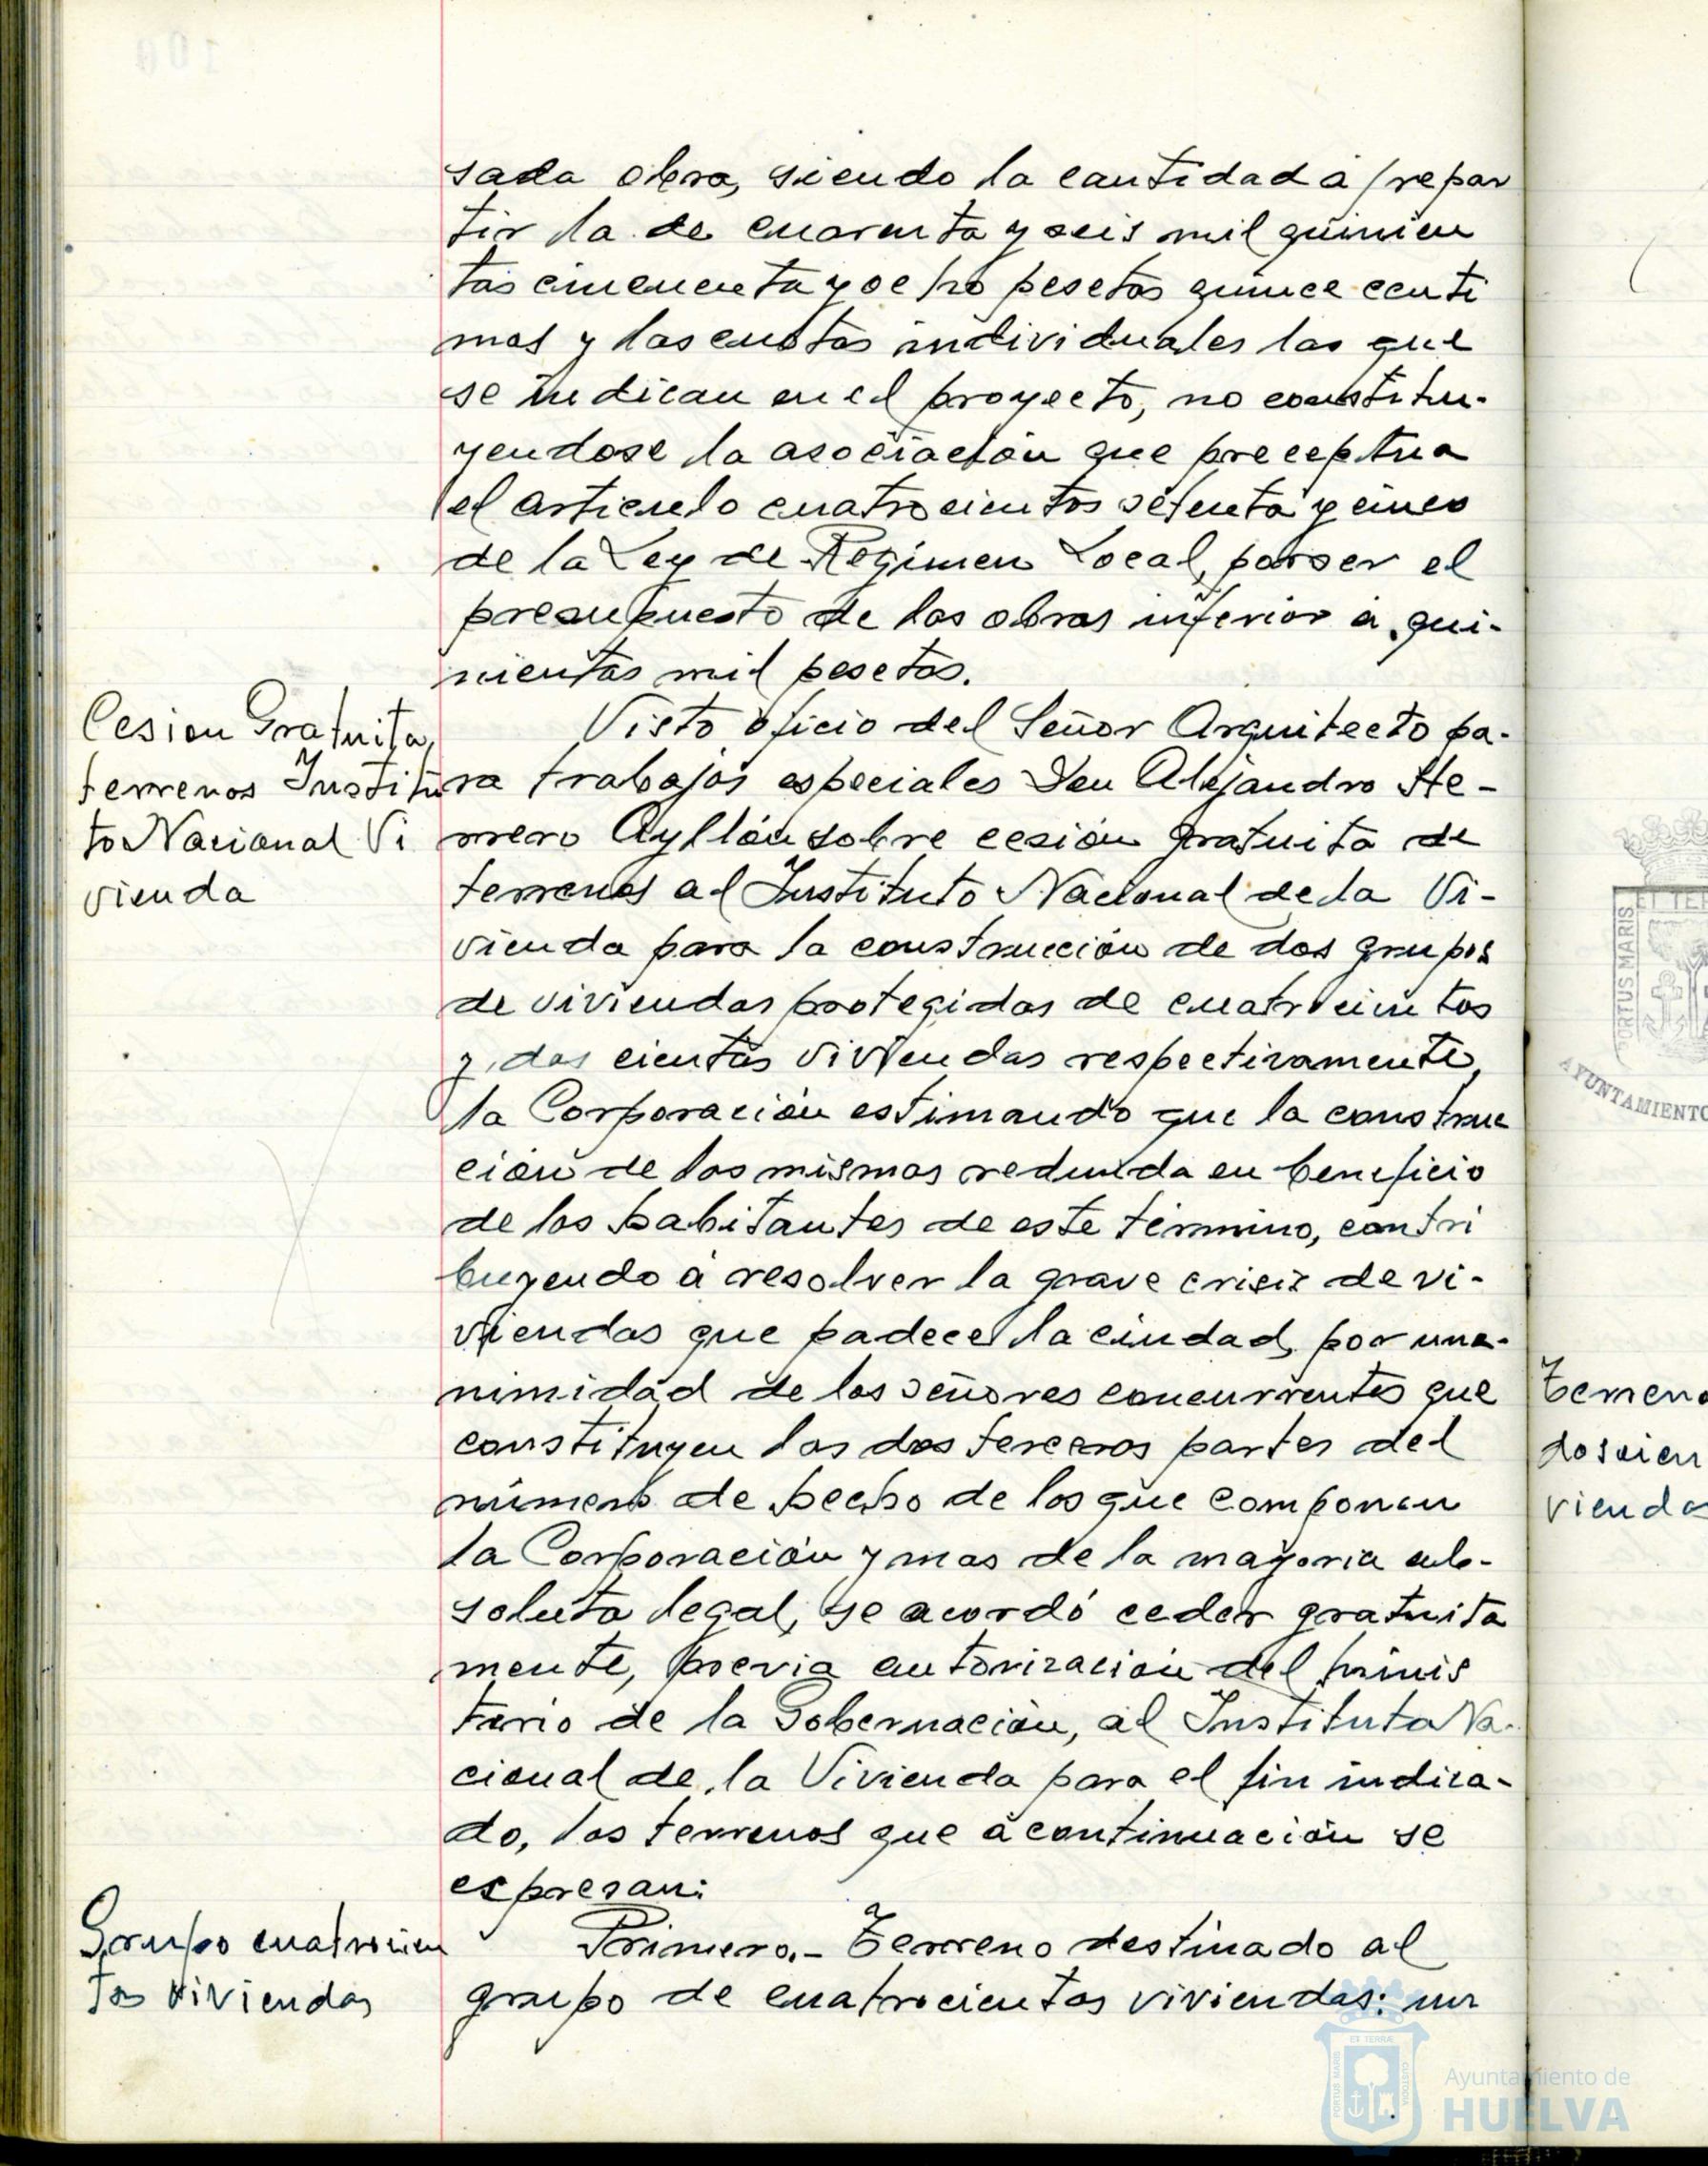 sada obra, siendo la cantidad á repar
tir la de cuarenta y seis mil quinien
tas cincuenta y ocho pesetas quince centi
mos y las cuotas individuales las que
se indican en el proyecto, no constitu-
yendose la asociación que preceptua
el articulo cuatrocientos setenta y cinco
de la Ley de Regimen Local, por ser el
presupuesto de las obras inferior a qui-
nientas mil pesetas.
Cesion Gratuita,
terrenos Institu
to Nacional Vi
vienda
Visto oficio del Señor Arquitecto pa-
ra trabajos especiales Don Alejandro He-
rrero Ayllón sobre cesión gratuita de
terrenos al Instituto Nacional de la Vi-
vienda para la construcción de dos grupos
de viviendas protegidas de cuatrocientos
y dos cientas viviendas respectivamente,
la Corporación estimando que la construc
ción de los mismos redunda en beneficio
de los habitantes de este término, contri
buyendo á resolver la grave crisis de vi-
viendas que padece la ciudad, por una-
nimidad de los señores concurrentes que
constituyen las dos terceras partes del
número de hecho de los que componen
la Corporación y mas de la mayoria ab-
soluta legal, se acordó ceder gratuita
mente, previa autorización del Minis
terio de la Gobernación, al Instituto Na-
cional de la Vivienda para el fin indica-
do, los terrenos que á continuación se
expresan:
Grupo cuatrocien
tas viviendas
Primero.- Terreno destinado al
grupo de cuatrocientas viviendas: un
Terreno
doscien
viendas
ET TER
PORTUS MARIS
AYUNTAMIENTO
Ayuntamiento de
HUELVA